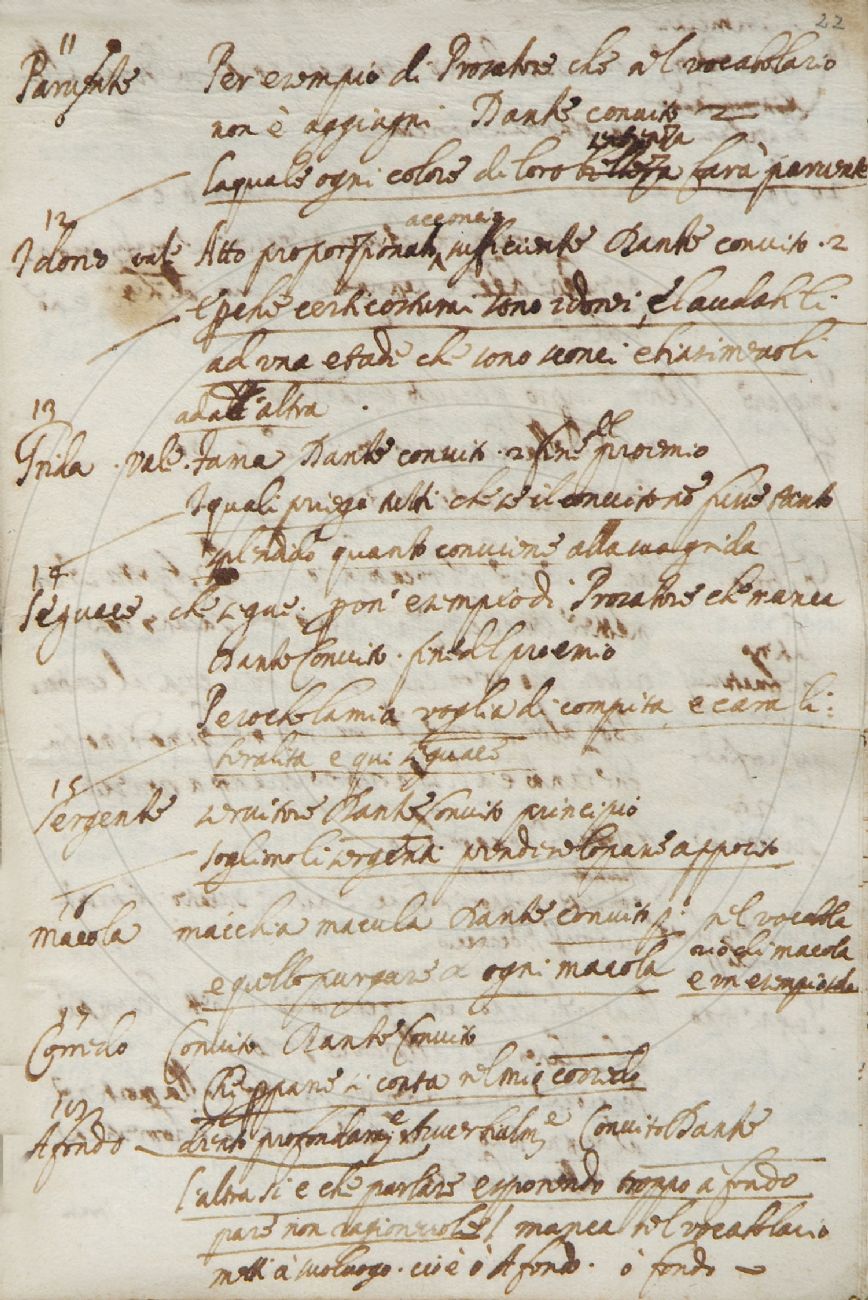 22
11
Paruente Per exempio di Prosatore che nel vocabolario
non è aggiugni Dante convito 2
laquale ogni colore di loro bellezza farà paruente
12
Idoneo vale Atto proporzionato sufficiente Dante convito . 2
e perche certi costumi sono idonei, e laudabili
ad una etade che sono sconci e biasimevoli
ad all'altra .
13
Grida . vale . fama Dante convito . 2 fine del proemio
I quali priego tutti che se il convito non fusse tanto
splendido quanto conviene alla sua grida
14
Seguace che segue . pon' esempio di Prosatore che manca
Dante Convito . fine del proemio
Peroche la mia voglia di compita, e cara li:
beralita e qui seguace
15
Sergente servitore Dante Convito principio
sogliono li sergenti prendere lo pane apposito
16
Macola macchia macula Dante convito nel vocabola
e quello purgare da ogni macola
17
Corredo Convito Dante Convito
Che pane si conta nel mio corredo
18
Afondo Convito Dante
l'altra si e che parlare esponendo troppo a fondo
pare non ragionevole / manca nel vocabolario
metti à suo luogo . cioè ò Afondo . ò fondo